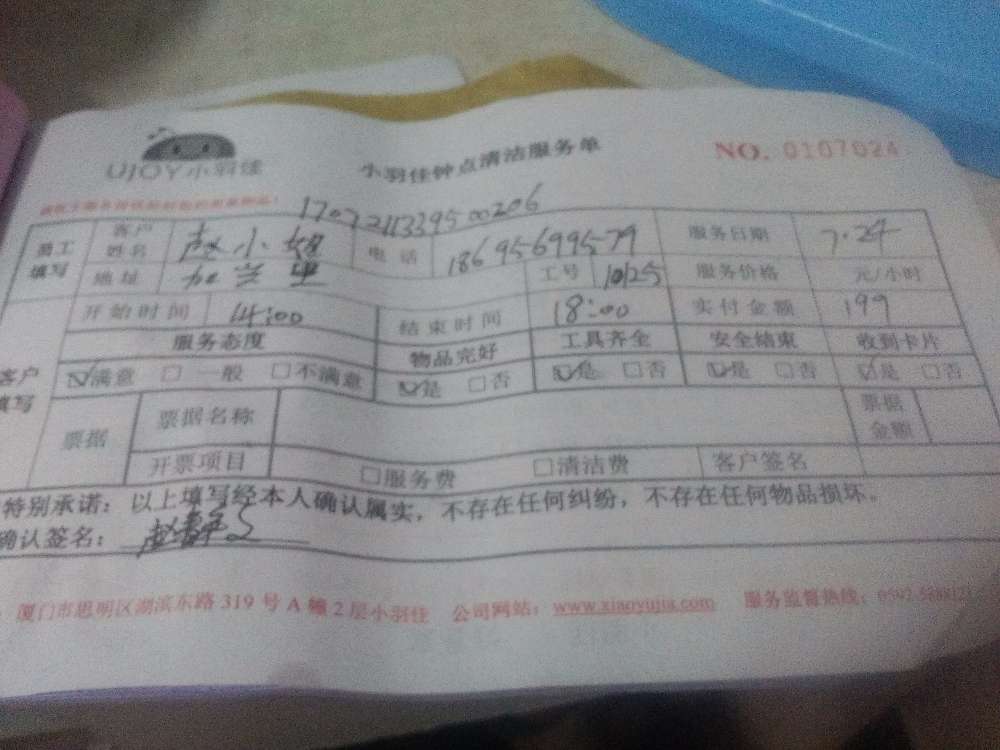 UJOY小羽佳
小羽佳钟点清洁服务单
NO. 0107024
员工填写 客户姓名 赵小姐 电话 18695699579 服务日期 7.24
地址 工号 10125 服务价格 元/小时
开始时间 14:00 结束时间 18:00 实付金额 199
客户填写 服务态度 物品完好 工具齐全 安全结束 收到卡片
☑满意 □一般 □不满意 ☑是 □否 ☑是 □否 ☑是 □否 ☑是 □否
票据 票据名称 票据金额
开票项目 □服务费 □清洁费 客户签名
特别承诺：以上填写经本人确认属实，不存在任何纠纷，不存在任何物品损坏。
确认签名：
厦门市思明区湖滨东路 319 号 A 幢 2 层小羽佳 公司网站：www.xiaoyujia.com 服务监督热线：